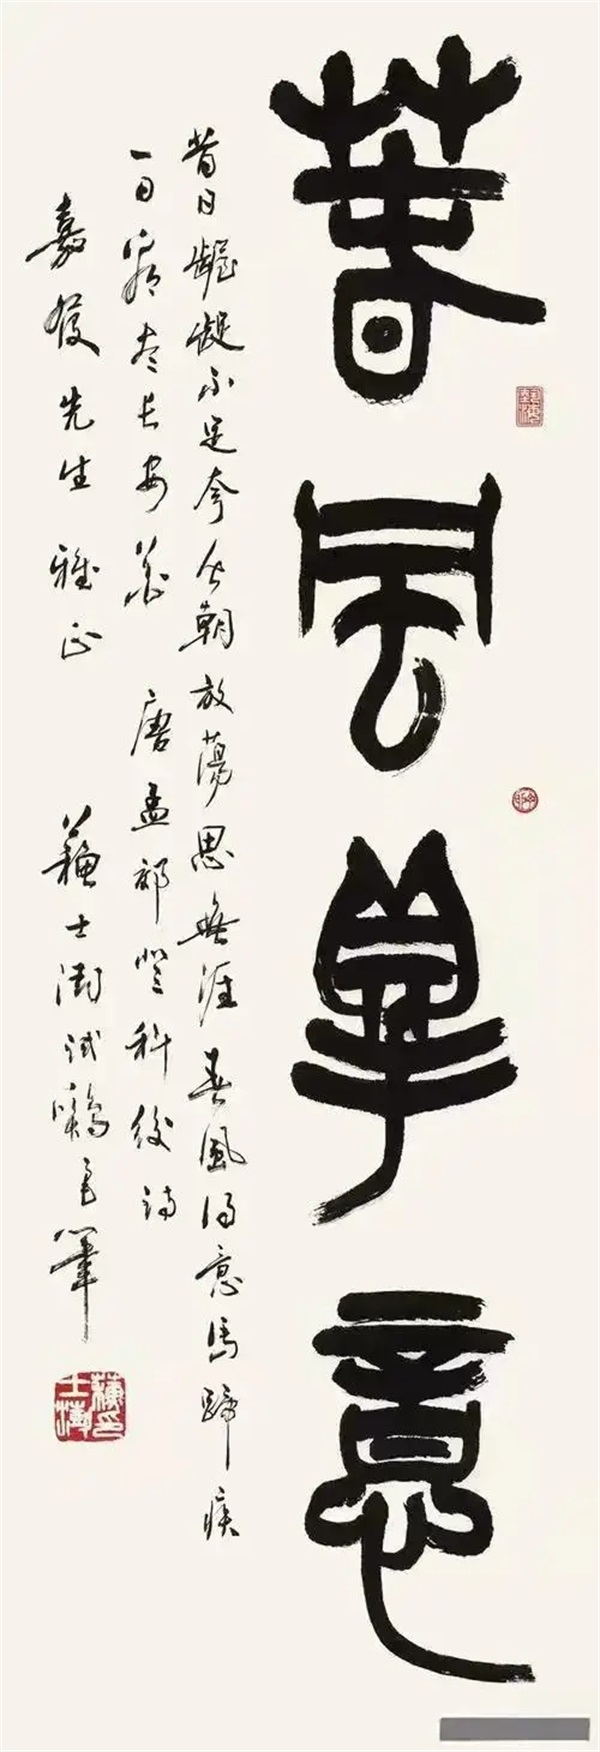 春風得意
昔日齷齪不足夸今朝放蕩思無涯春風得意馬蹄疾
一日看盡長安花 唐孟郊登科後詩
嘉先生雅正 蘇士澍試鷄毛筆
蘇士澍印